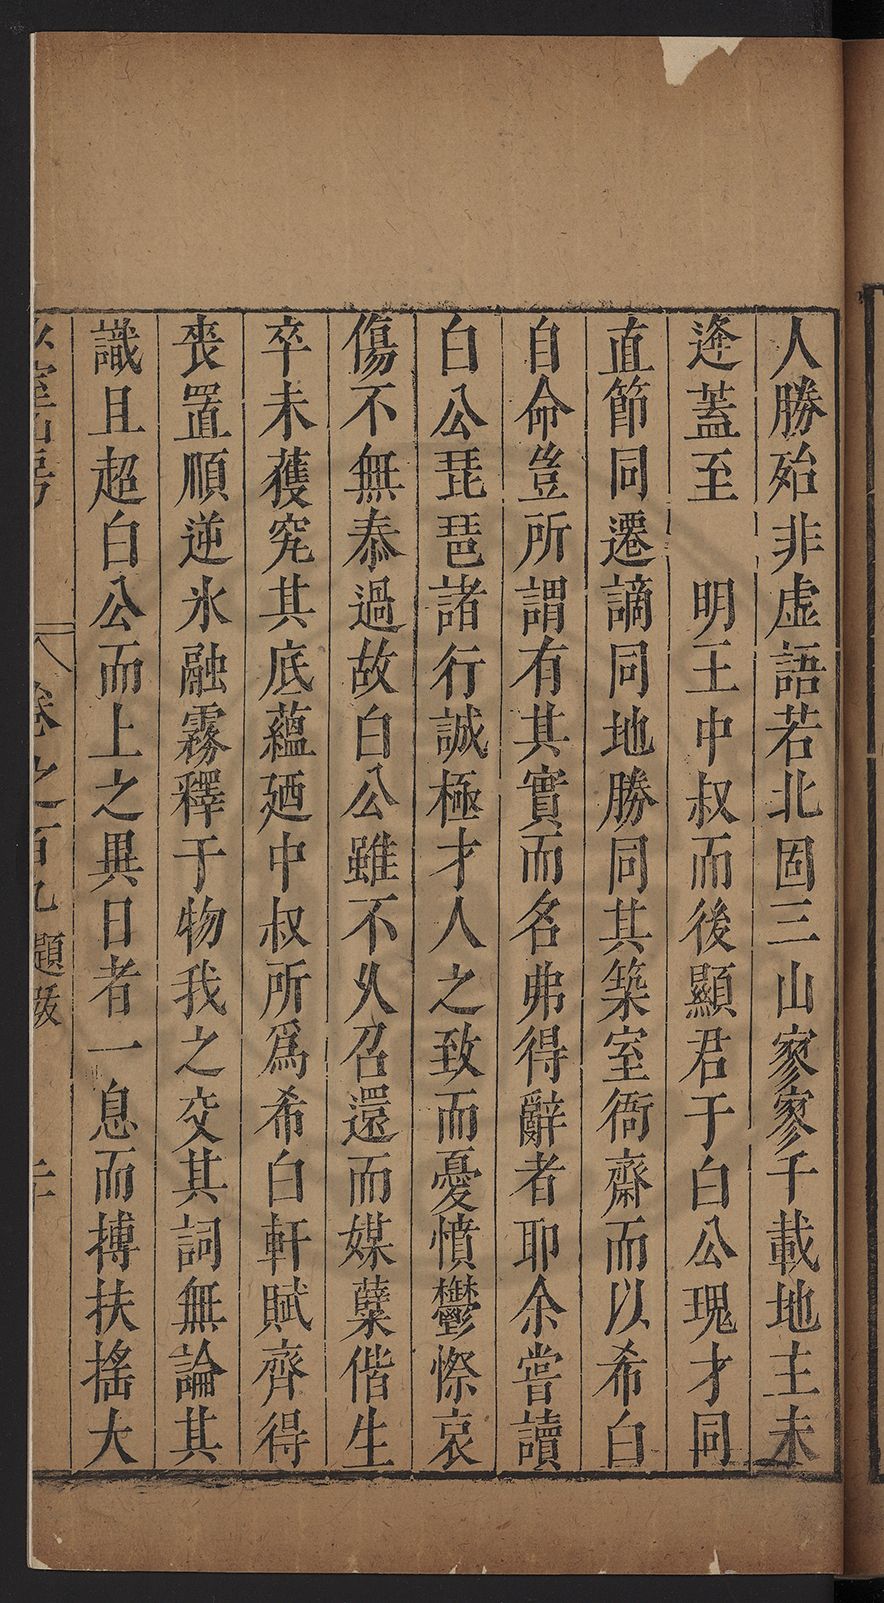 人勝殆非虛語若北固三山寥寥千載地主未
逢蓋至　明王中叔而後顯君于白公瑰才同
直節同遷謫同地勝同其築室衙齋而以希白
自命豈所謂有其實而名弗得辭者耶余嘗讀
白公琵琶諸行誠極才人之致而憂憤鬱憏哀
傷不無泰過故白公雖不久召還而媒蘖偕生
卒未獲究其底蘊廼中叔所爲希白軒賦齊得
喪置順逆氷融霧釋于物我之交其詞無論其
識且超白公而上之異日者一息而搏扶搖大
卷之百九 題跋